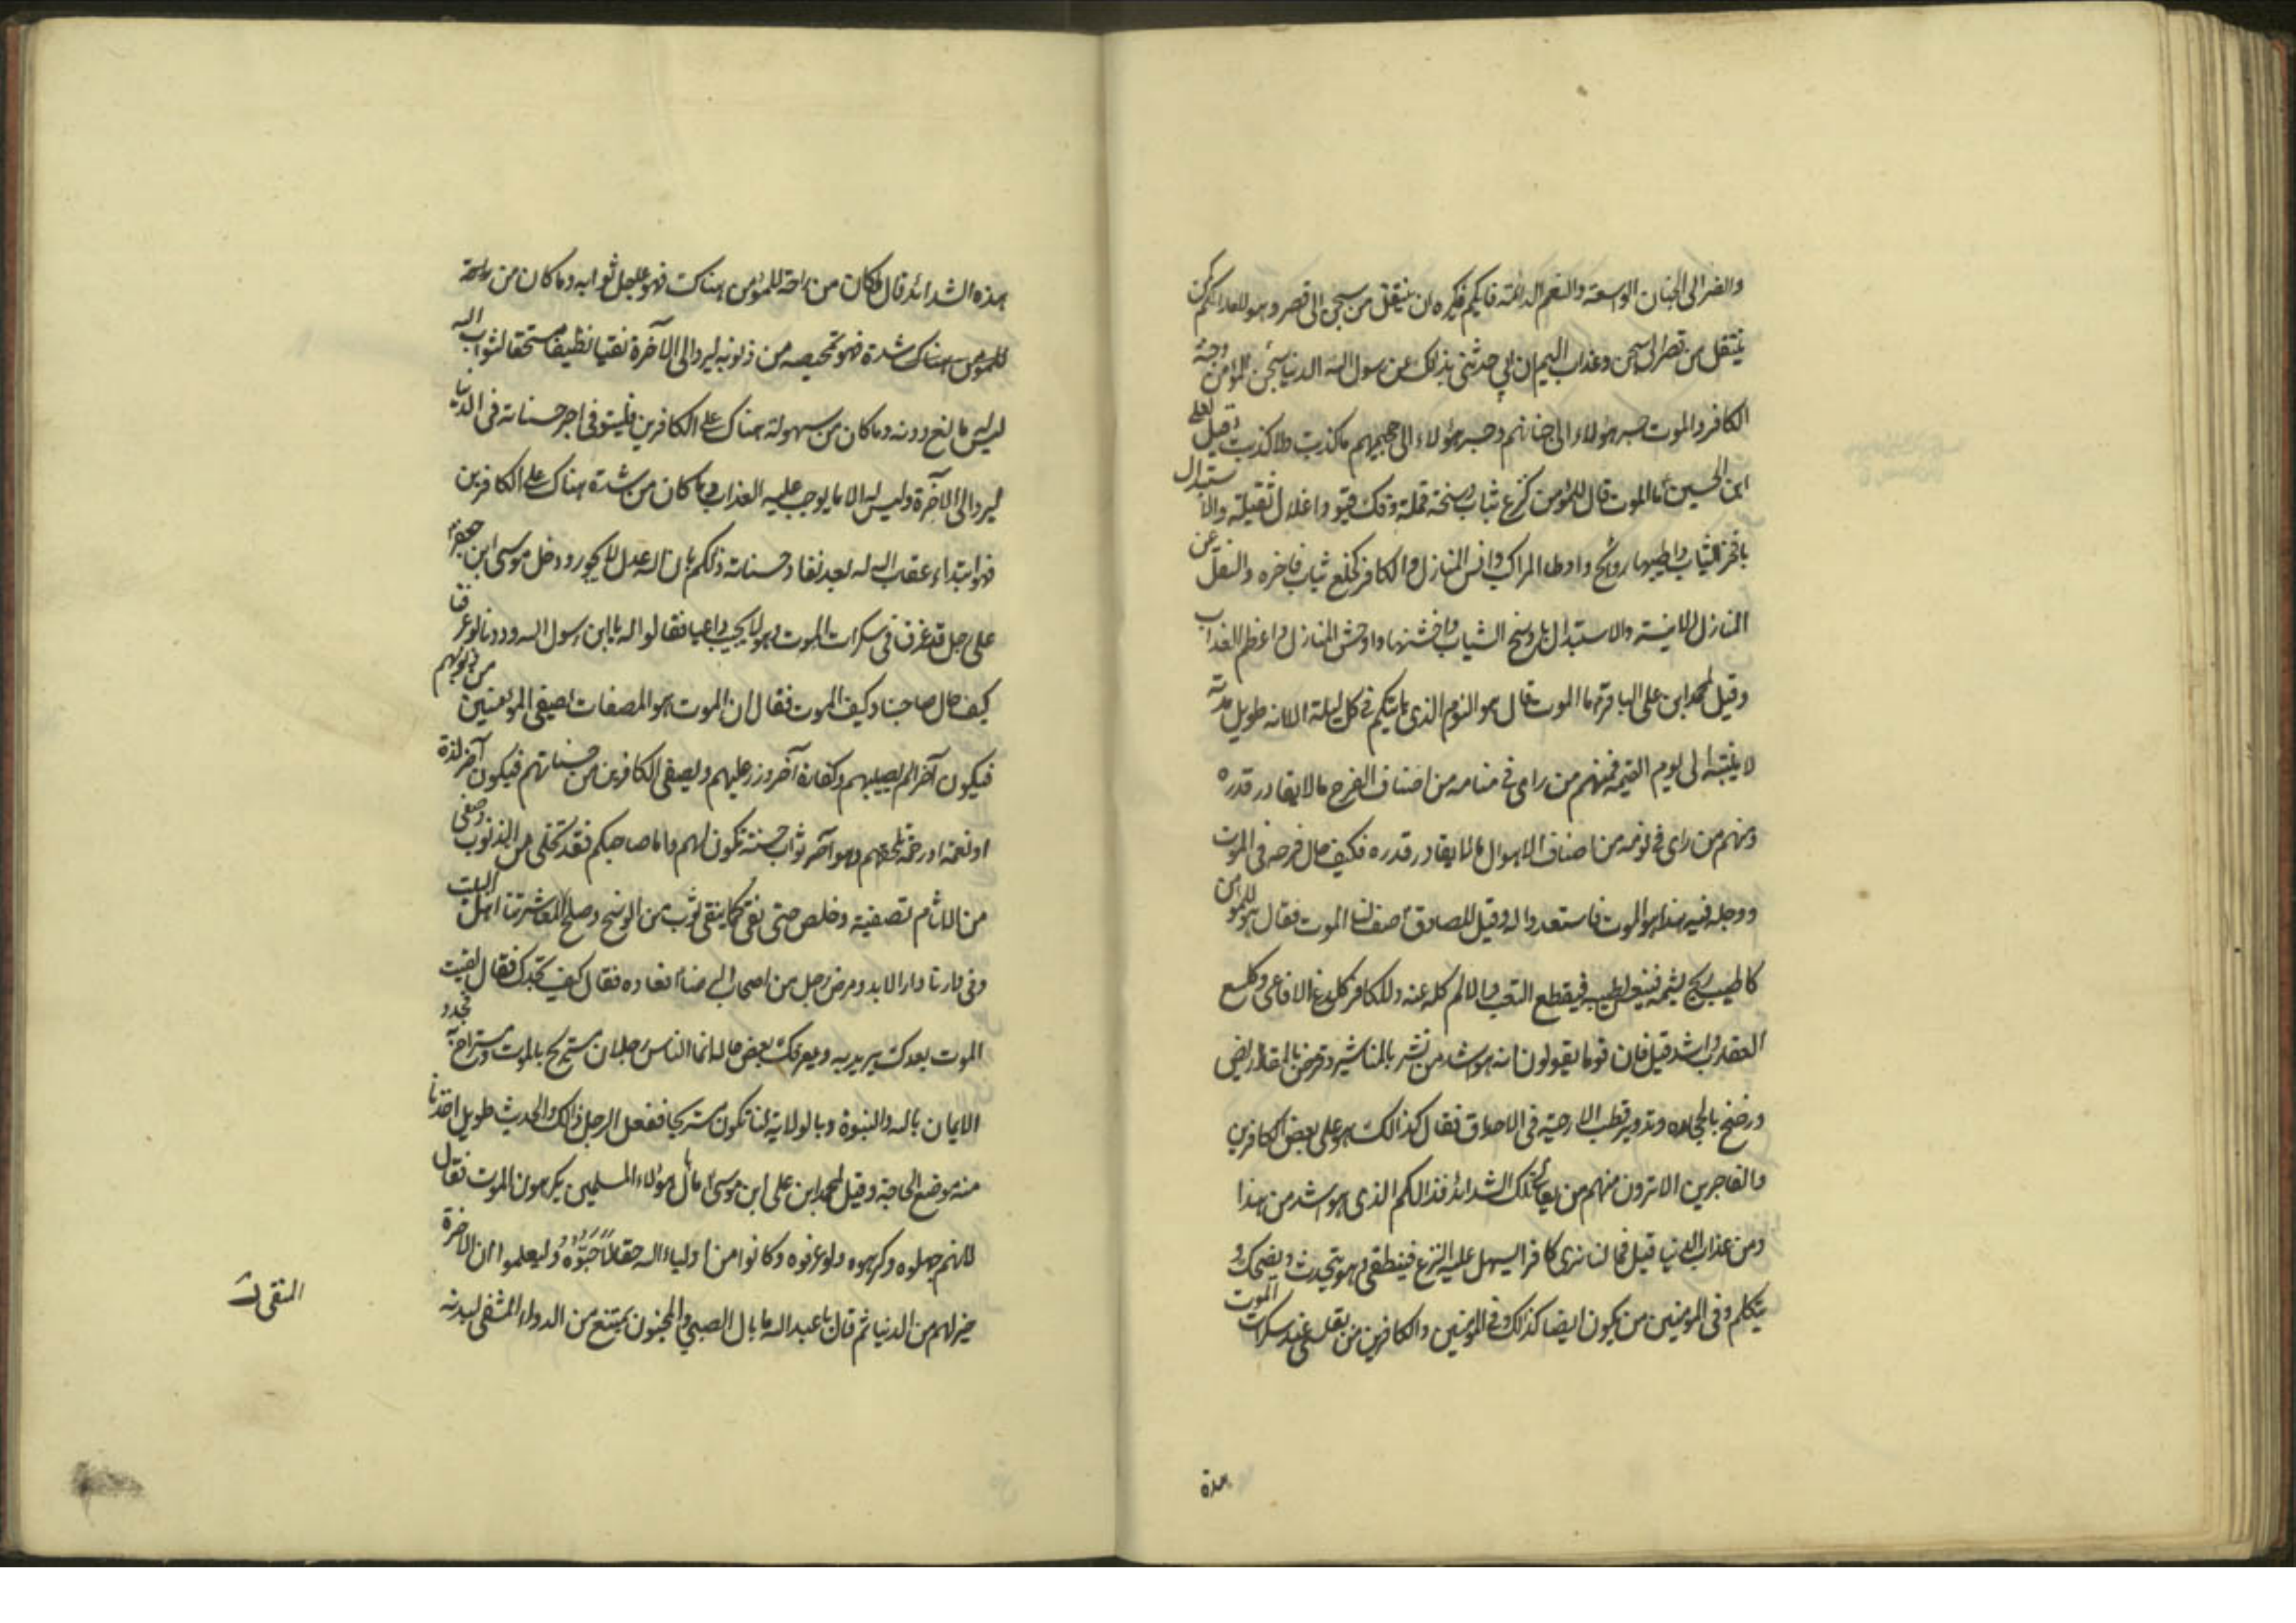 والضر الى الجنان الواسعة والنعم الدائمة فايكم يكره ان ينتقل من سجن الى قصر وهو للعدائكم كمن
ينتقل من قصر الى سجن وعذاب اليم ان ابي حدثني بذلك عن رسول الله الدنيا سجن المؤمن وجنة
الكافر والموت جسر هؤلاء الى جنانهم وجسر هؤلاء الى جحيمهم ما كذبت ولا كذبت وقيل لعلي
ابن الحسين ما الموت قال للمؤمن كنزع ثياب وسخة قملة وفك قيود واغلال ثقيلة والاستبدال
بافخر الثياب واطيبها روائح واوطا المراكب وانس المنازل والكافر كخلع ثياب فاخره والنقل عن
المنازل الانيسة والاستبدال باوسخ الثياب واخشنها واوحش المنازل واعظم العذاب
وقيل لمحمد ابن علي الباقر ما الموت قال هو النوم الذي ياتيكم في كل ليلة الا انه طويل مدته
لا ينتبه الى يوم القيمة فمنهم من راى في منامه من اصناف الفرح مالا يقادر قدره
ومنهم من راى في نومه من اصناف الاهوال ما لا يقادر قدره فكيف حال فرحه في الموت
ووجله فيه هذا هو الموت فاستعدوا له وقيل للصادق صف لنا الموت فقال هو للمؤمن
كاطيب ريح يشمه فينعس لطيبه فيقطع التعب والالم كله عنه وللكافر كلدغ الافاعي وكلسع
العقارب واشد قيل فان قوما يقولون انه هو اشد من نشر بالمناشير وقرض بالمقاريض
ورضخ بالحجاره وتدوير قطب الارحية في الاحداق فقال كذالك هو على بعض الكافرين
والفاجرين الا ترون منهم من يعاين تلك الشدائد فذالكم الذي هو اشد من هذا
ومن عذاب الدنيا قيل فما لن نرى كافرا يسهل عليه النزع فينطفى وهو يتحدث ويضحك و
يتكلم وفي المؤمنين من يكون ايضا كذلك وفي المؤمنين والكافرين من يقاسى عند سكرات الموت
هذة
هذه الشدائد قال فكان من راحة للمؤمن هناك فهو عاجل ثوابه وما كان من راحة
للمؤمن هناك شدة فهو تمحيصه من ذنوبه ليرد الى الآخرة نقيا نظيفا مستحقا لثواب الله
ليس له مانع دونه وما كان من سهولة هناك على الكافرين فليتوفى اجر حسناته في الدنيا
ليرد الى الآخرة وليس له الا ما يوجب عليه العذاب وما كان من شدة هناك على الكافرين
فهو ابتداء عقاب الله له بعد نفاد حسناته ذلكم بان الله عدل لا يجور ودخل موسى ابن جعفر
على رجل قد غرق في سكرات الموت وهو لا يجيب داعيا فقالوا له يا ابن رسول الله وددنا لو عرفنا
كيف حال صاحبنا وكيف الموت فقال ان الموت هو المصفات يصفي المؤمنين من ذنوبهم
فيكون آخر الم يصيبهم وكفارة آخر وزر عليهم ويصفي الكافرين من حسناتهم فيكون آخر لذة
او نعمة او رحمة تلحقهم وهو آخر ثواب حسنة تكون لهم واما صاحبكم فقد تخلى من الذنوب وصفي
من الاثام تصفية وخلص حتى نقي كما ينقى ثوب من الوسخ وصلح لمعاشرتنا اهل البيت
وفي دارنا دار الابد ومرض رجل من اصحاب الرضا فعاده فقال كيف تجدك فقال لقيت
الموت بعدك يريد به ويعرفك بعض حاله انما الناس رجلان مستريح بالموت ومستراح به فجدد
الايمان بالله والنبوة وبالولاية لنا تكون مستريحا ففعل الرجل ذالك والحديث طويل اخذنا
منه موضع الحاجة وقيل لمحمد ابن علي ابن موسى ما بال هؤلاء المسلمين يكرهون الموت فقال
لانهم جهلوه وكرهوه ولو عرفوه وكانوا من اولياء الله حقا لاَحَبّوهُ وليعلموا ان الاخرة
خير لهم من الدنيا ثم قال يا عبد الله ما بال الصبي والمجنون يمتنع من الدواء المنقى لبدنه
المنقى